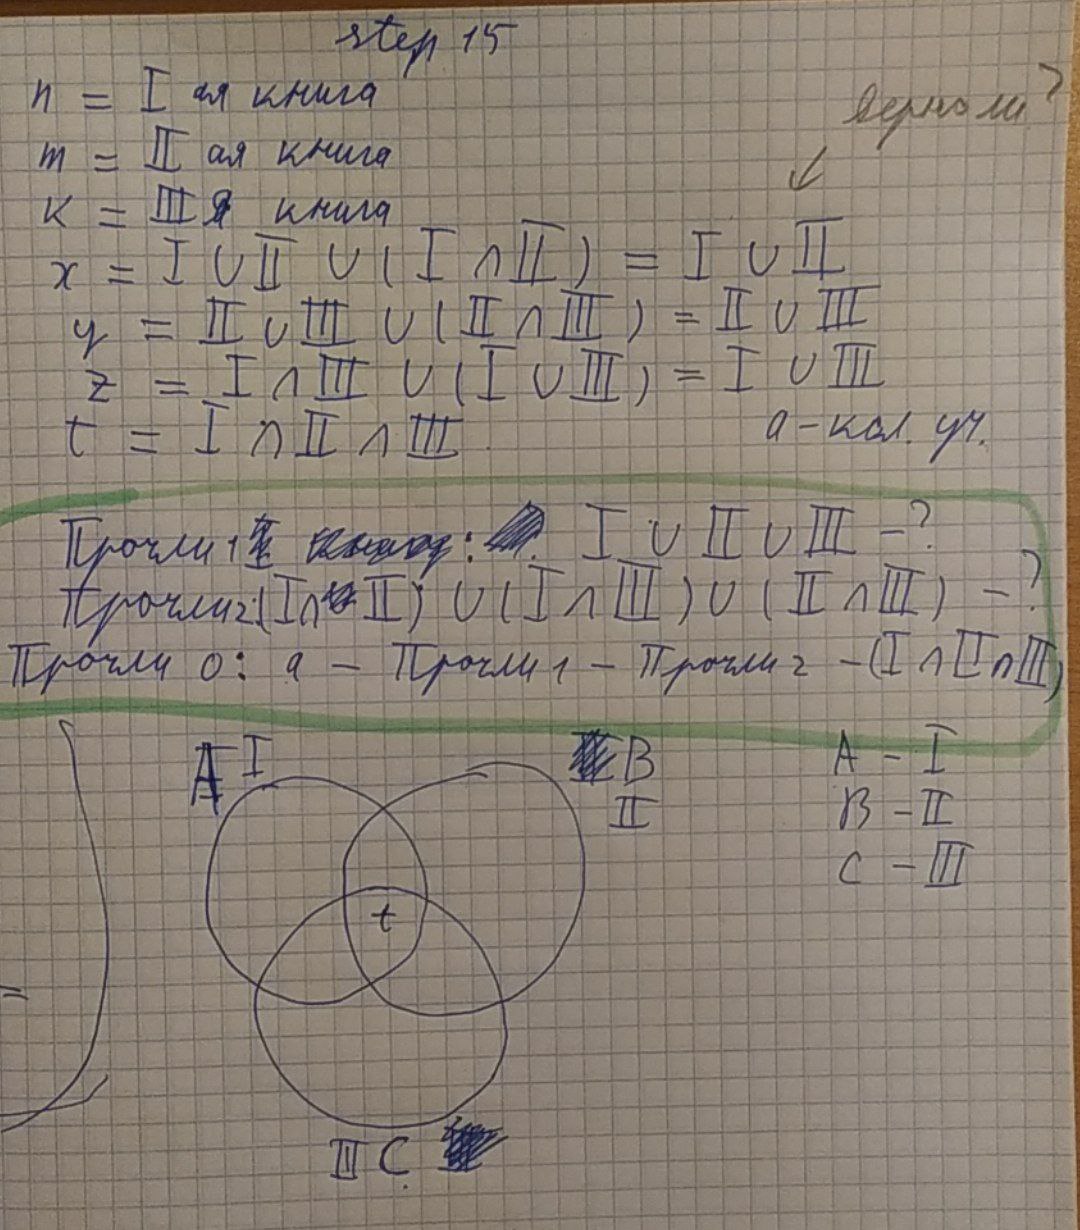 step 15
n = I ая книга
верно ли?
m = II ая книга
к = III я книга
x = I ∪ II ∪ (I ∩ II) = I ∪ II
y = II ∪ III ∪ (II ∩ III) = II ∪ III
z = I ∩ III ∪ (I ∪ III) = I ∪ III
t = I ∩ II ∩ III
a - кол. уч.
Прочли 1 : I ∪ II ∪ III - ?
Прочли 2: (I ∩ II) ∪ (I ∩ III) ∪ (II ∩ III) - ?
Прочли 0: a - Прочли 1 - Прочли 2 - (I ∩ II ∩ III)
A I
B
II
A - I
B - II
C - III
t
=
III C.